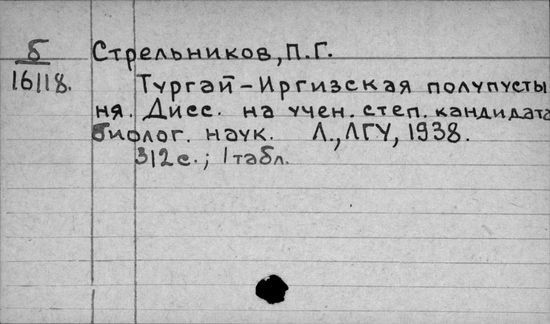 б Стрельников, П. Г.
16118. Тургай-Иргизская полупусты
ня. Дисс. на учен. степ. кандидата
биолог. наук. Л., ЛГУ, 1938.
312 с.; 1 табл.